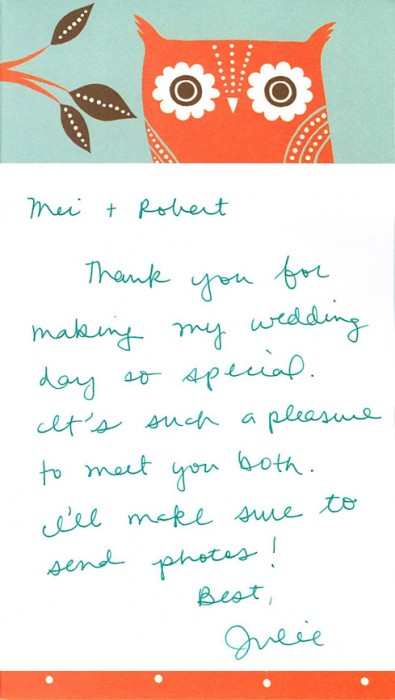 Mei + Robert
Thank you for
making my wedding
day so special.
It's such a pleasure
to meet you both.
I'll make sure to
send photos!
Best,
Julie